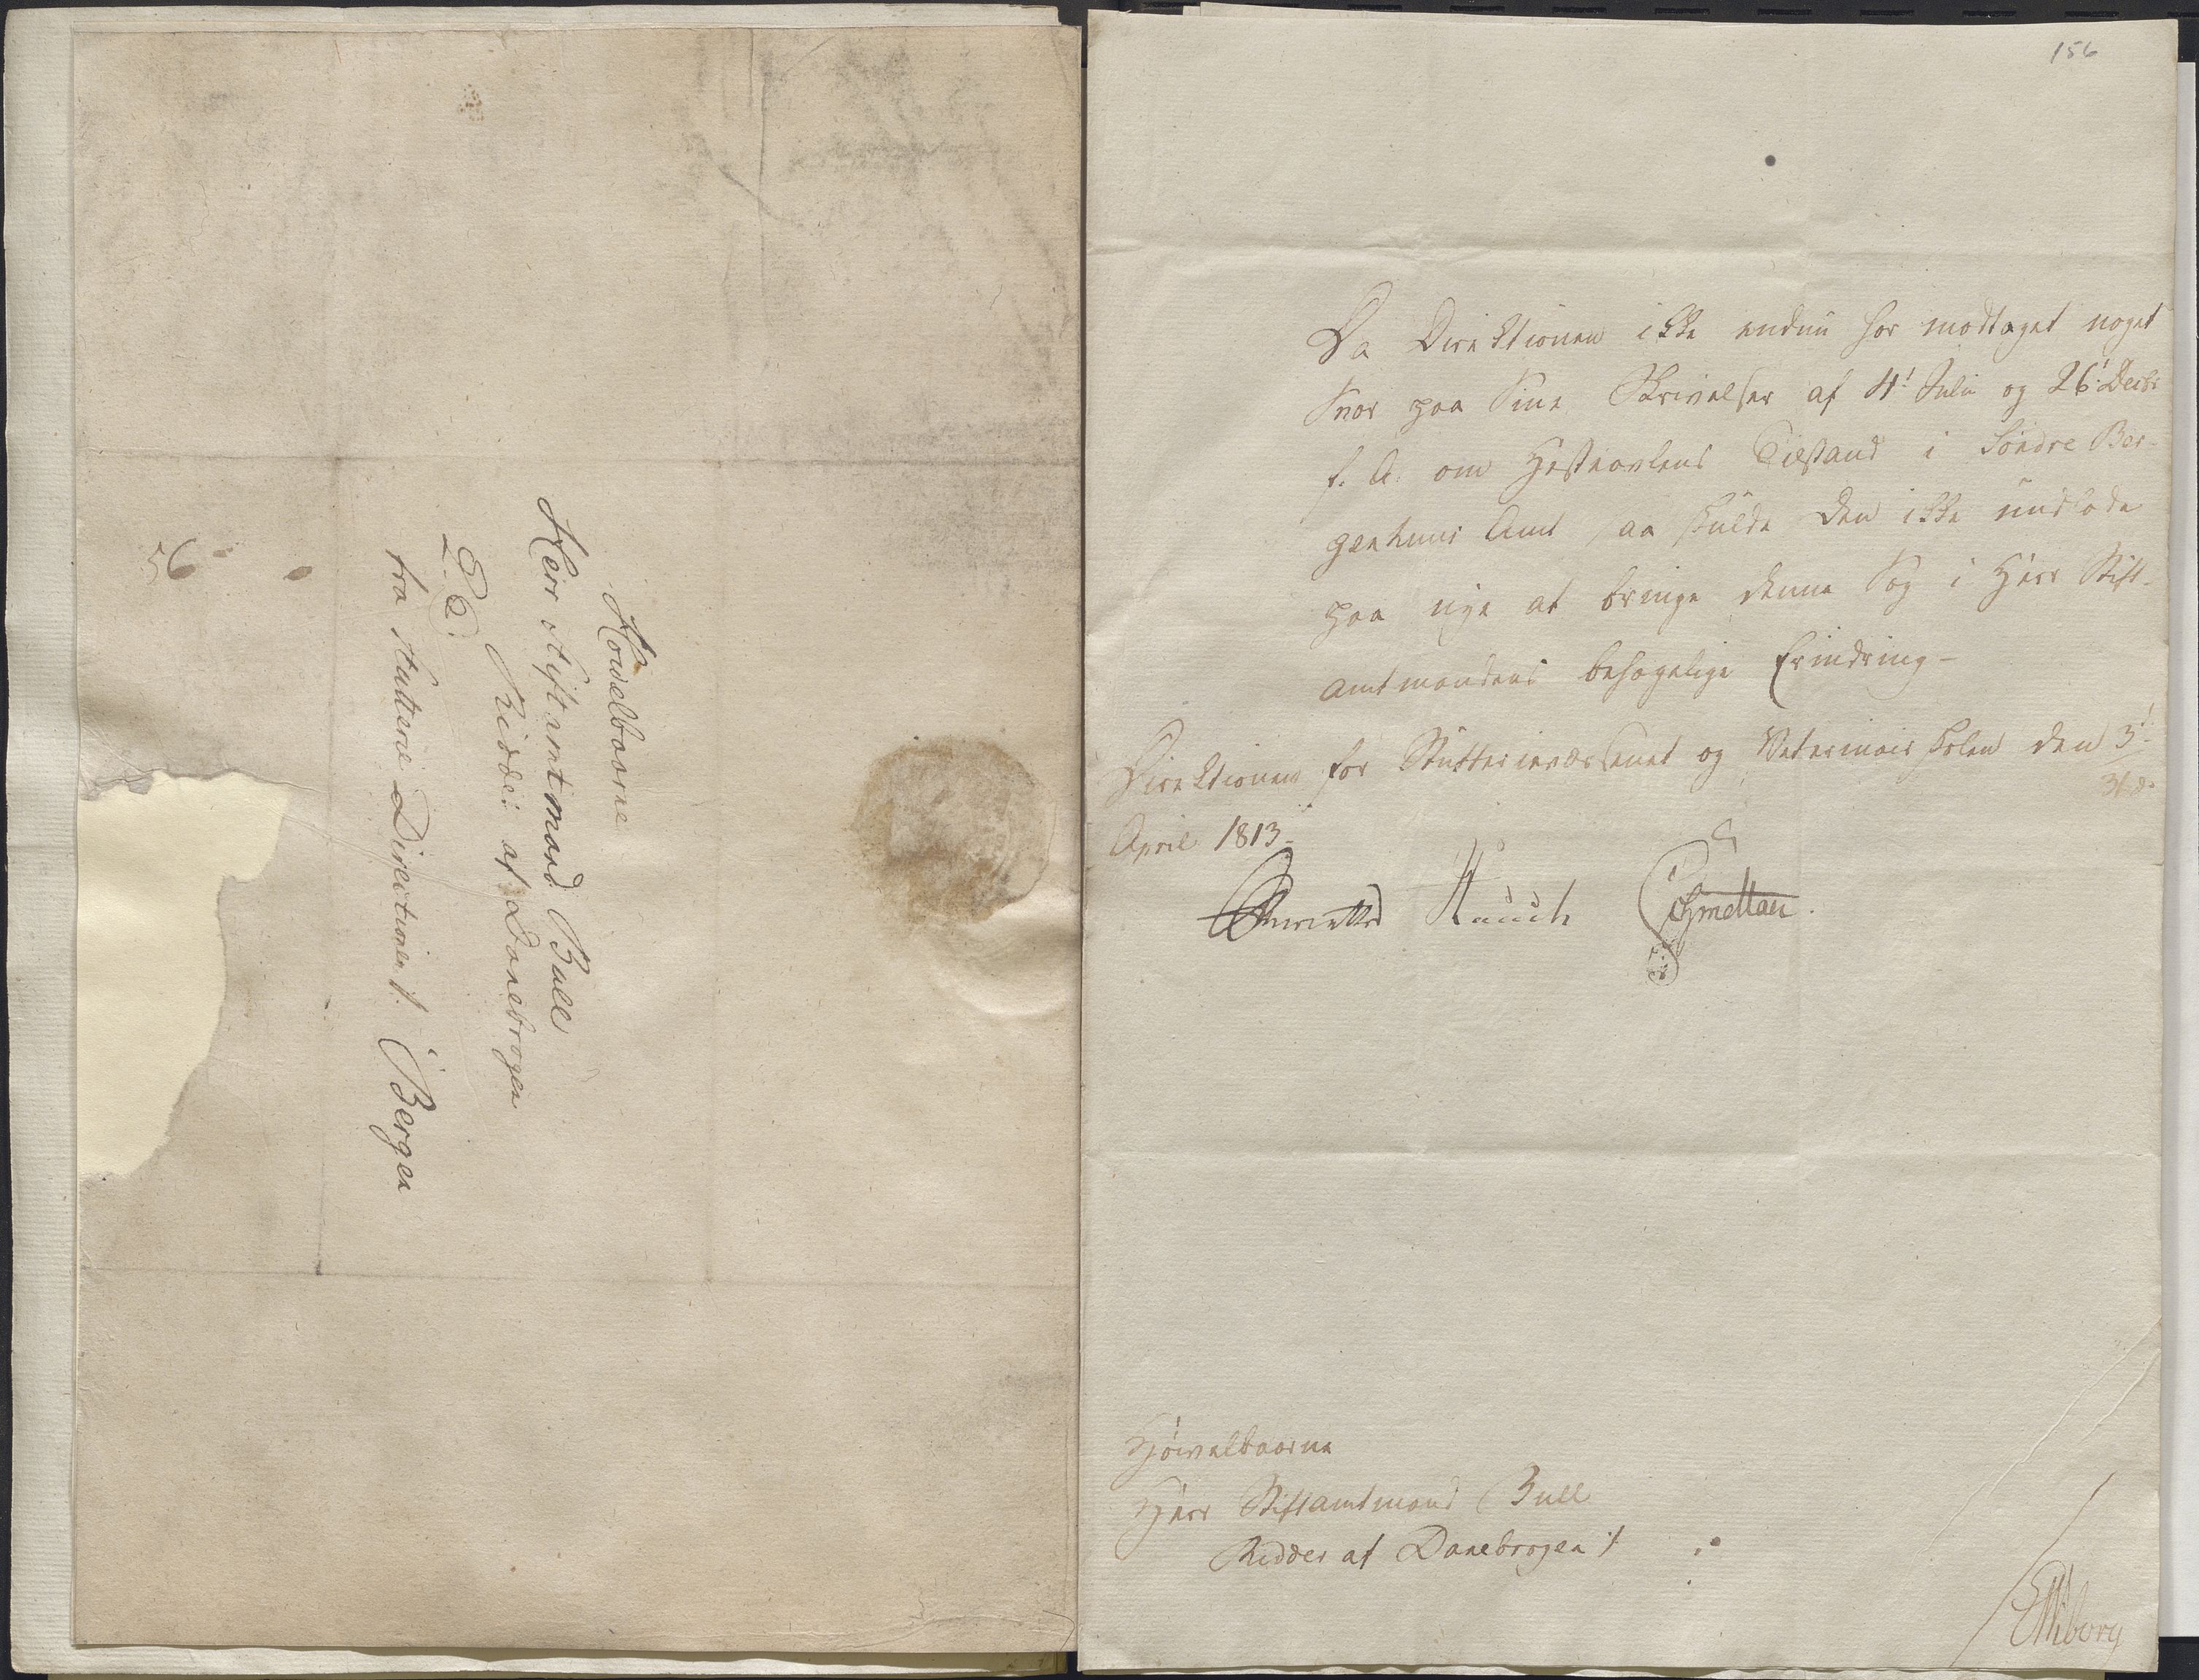 Høivelbaarne
Herr Stiftamtmand Bull
Ridder af Danebrogen
E. T.
fra Stutterie Directionen /. Bergen
56
156
Da Direktionen ikke endnu har modtaget noget
Svar paa Sine Skrivelser af 4! Julii og 26! Decbr
f. A. om Hesteavlens Tilstand i Söndre Ber-
genhuus Amt, saa skulde den ikke undlade
paa nye at bringe denne Sag i Herr Stift-
amtmandens behagelige Erindring -
Direktionen for Stutterievæsenet og Veterinairskolen den 3!
April 1813.
Hauch Schmettau.
Høivelbaarne
Herr Stiftamtmand Bull
Ridder af Danebrogen /
EViborg